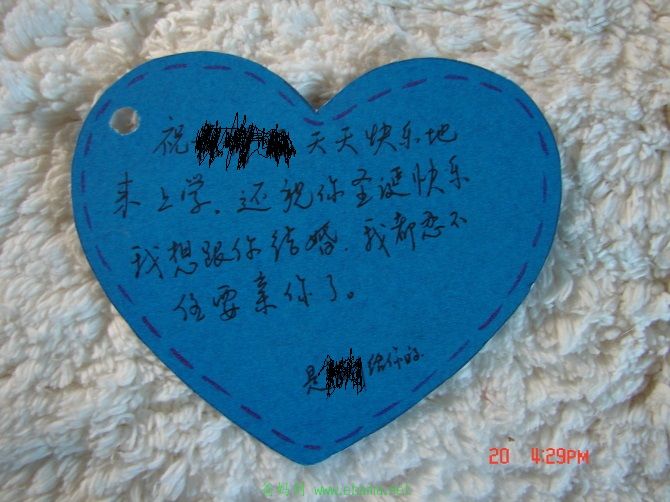 祝 天天快乐地
来上学,还祝你圣诞快乐
我想跟你结婚,我都忍不
住要亲你了。
是 给你的
20 4:29PM